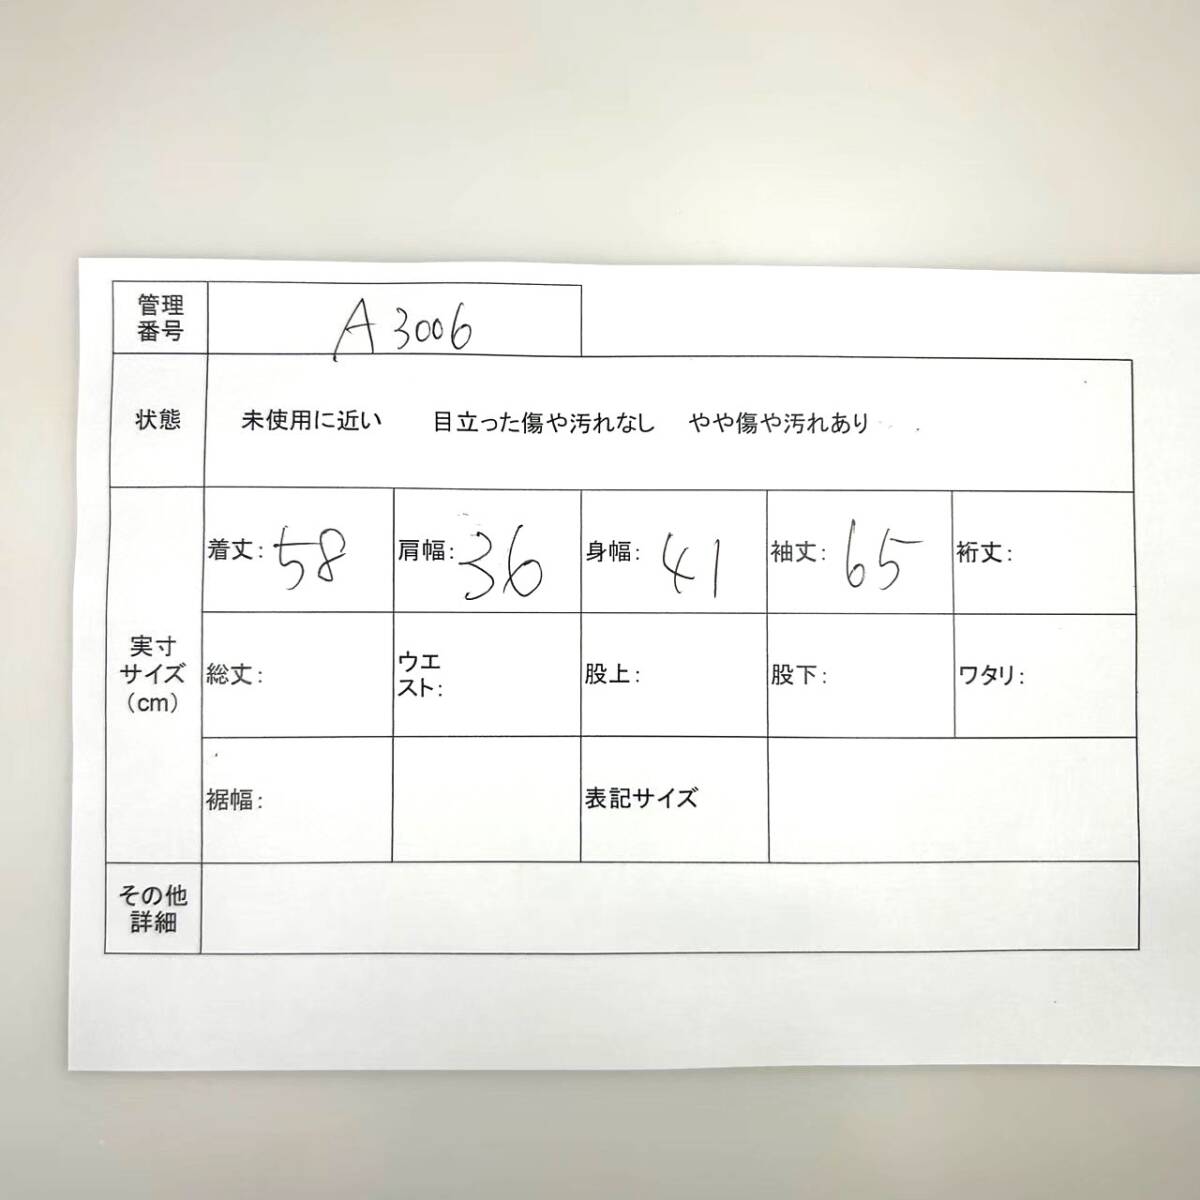 管理
番号
A3006
状態
未使用に近い 目立った傷や汚れなし やや傷や汚れあり
実寸
サイズ
(cm)
着丈: 58
肩幅: 36
身幅: 41
袖丈: 65
裄丈:
総丈:
ウエ
スト:
股上:
股下:
ワタリ:
裾幅:
表記サイズ
その他
詳細